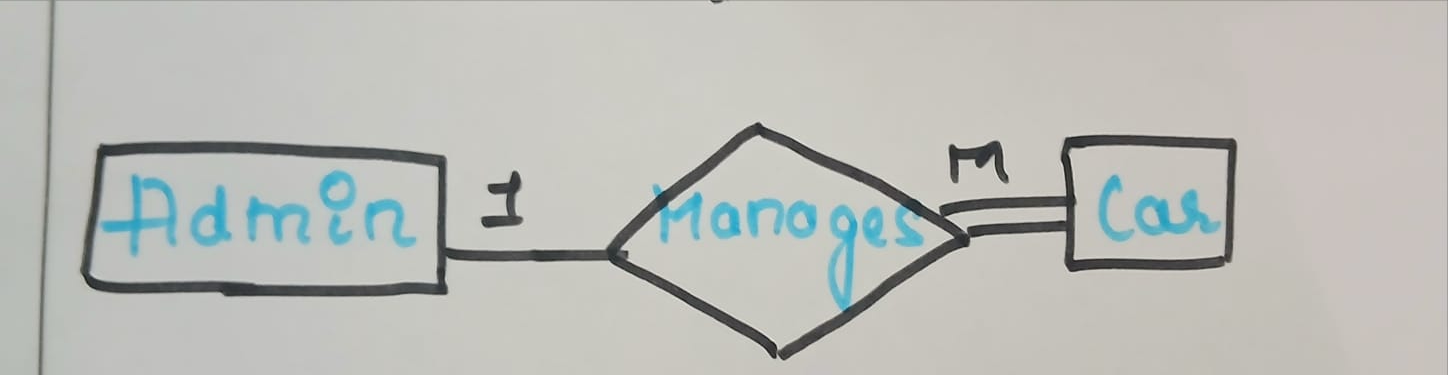 Admin 1 Manages M Car